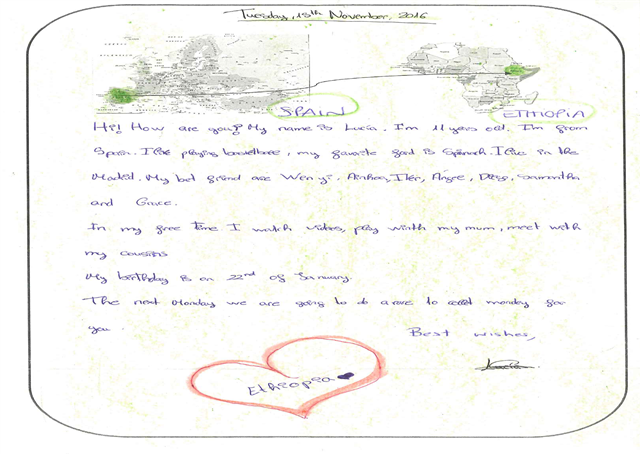 Tuesday, 15th November, 2016
SPAIN
ETHIOPIA
Hi! How are you? My name is Lucía. I'm 11 years old. I'm from
Spain. I like playing, my favorite food is Spinach. I live in the
Madrid. My best friend are Wenyi, Ainhoa, Iker, Angie, Diego, Samantha
and Grace.
In my free time I watch videos, play with my mum, meet with
my cousins
My birthday is on 22nd of January.
The next Monday we are going to do a race to collect monday for
you.
Best wishes,
Ethiopia